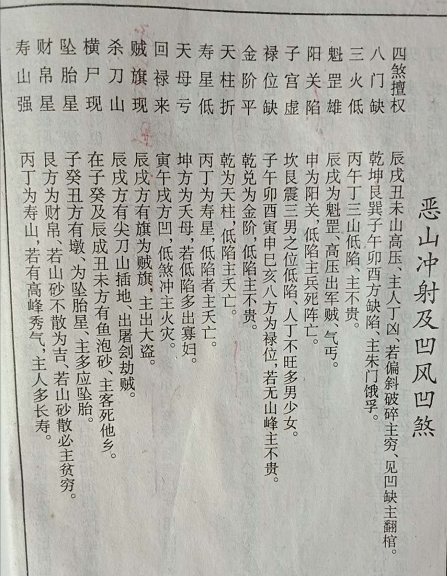 恶山冲射及凹风凹煞
四煞擅权 辰戌丑未山高压、主人丁凶、若偏斜破碎主穷、见凹缺主翻棺。
八门缺 乾坤艮巽子午卯酉方缺陷、主朱门饿孚。
三火低 丙午丁三山低陷、主不贵。
魁罡雄 辰戌为魁罡、高压出军贼、气丐。
阳关陷 申为阳关，低陷主兵死阵亡。
子宫虚 坎艮震三男之位低陷，人丁不旺多男少女。
禄位缺 子午卯酉寅申巳亥八方为禄位，若无山峰主不贵。
金阶平 乾兑为金阶，低陷主不贵。
天柱折 乾为天柱，低陷主夭亡。
寿星低 丙丁为寿星，低陷者主夭亡。
天母亏 坤方为天母，若低陷多出寡妇。
回禄来 寅午戌方凹，低煞冲主火灾。
贼旗现 辰戌方有旗为贼旗，主出大盗。
杀刀山 辰戌方有尖刀山插地、出屠刽劫贼。
横尸现 在子癸及辰戌丑未方有鱼泡砂、主客死他乡。
坠胎星 子癸丑方有墩、为坠胎星、主多应坠胎。
财帛星 艮方为财帛、若山砂不散为吉、若山砂散必主贫穷。
寿山强 丙丁为寿山，若有高峰秀气，主人多长寿。